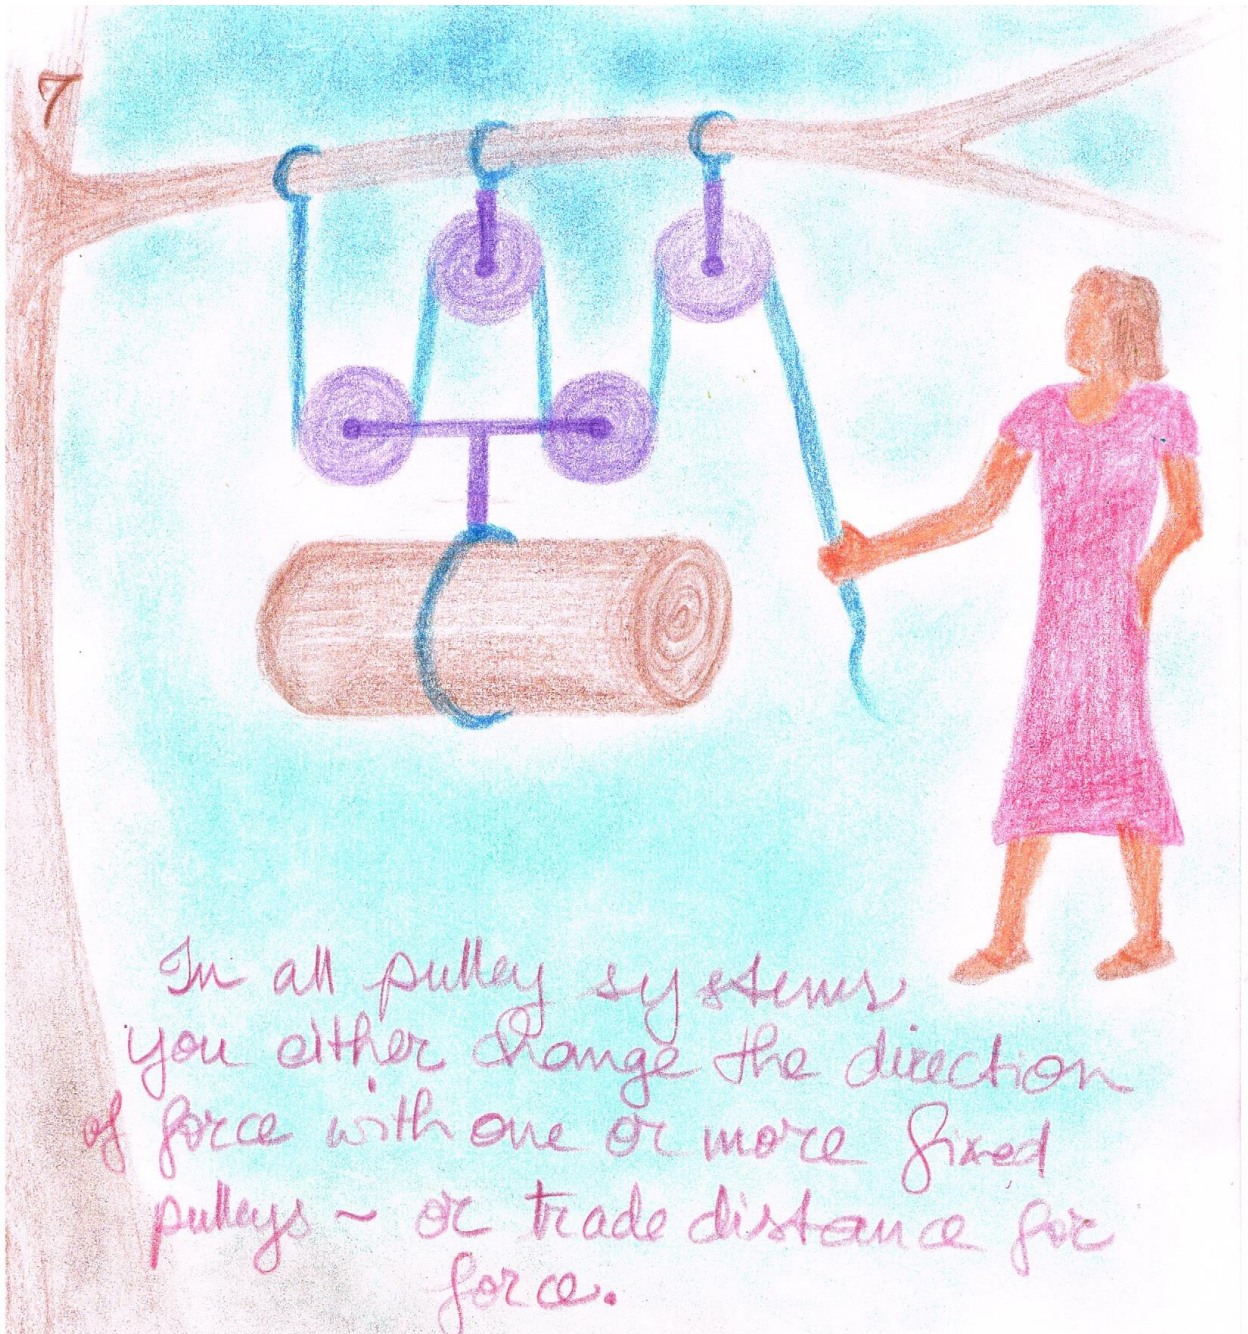 7
In all pulley systems
you either change the direction
of force with one or more fixed
pulleys ~ or trade distance for
force.